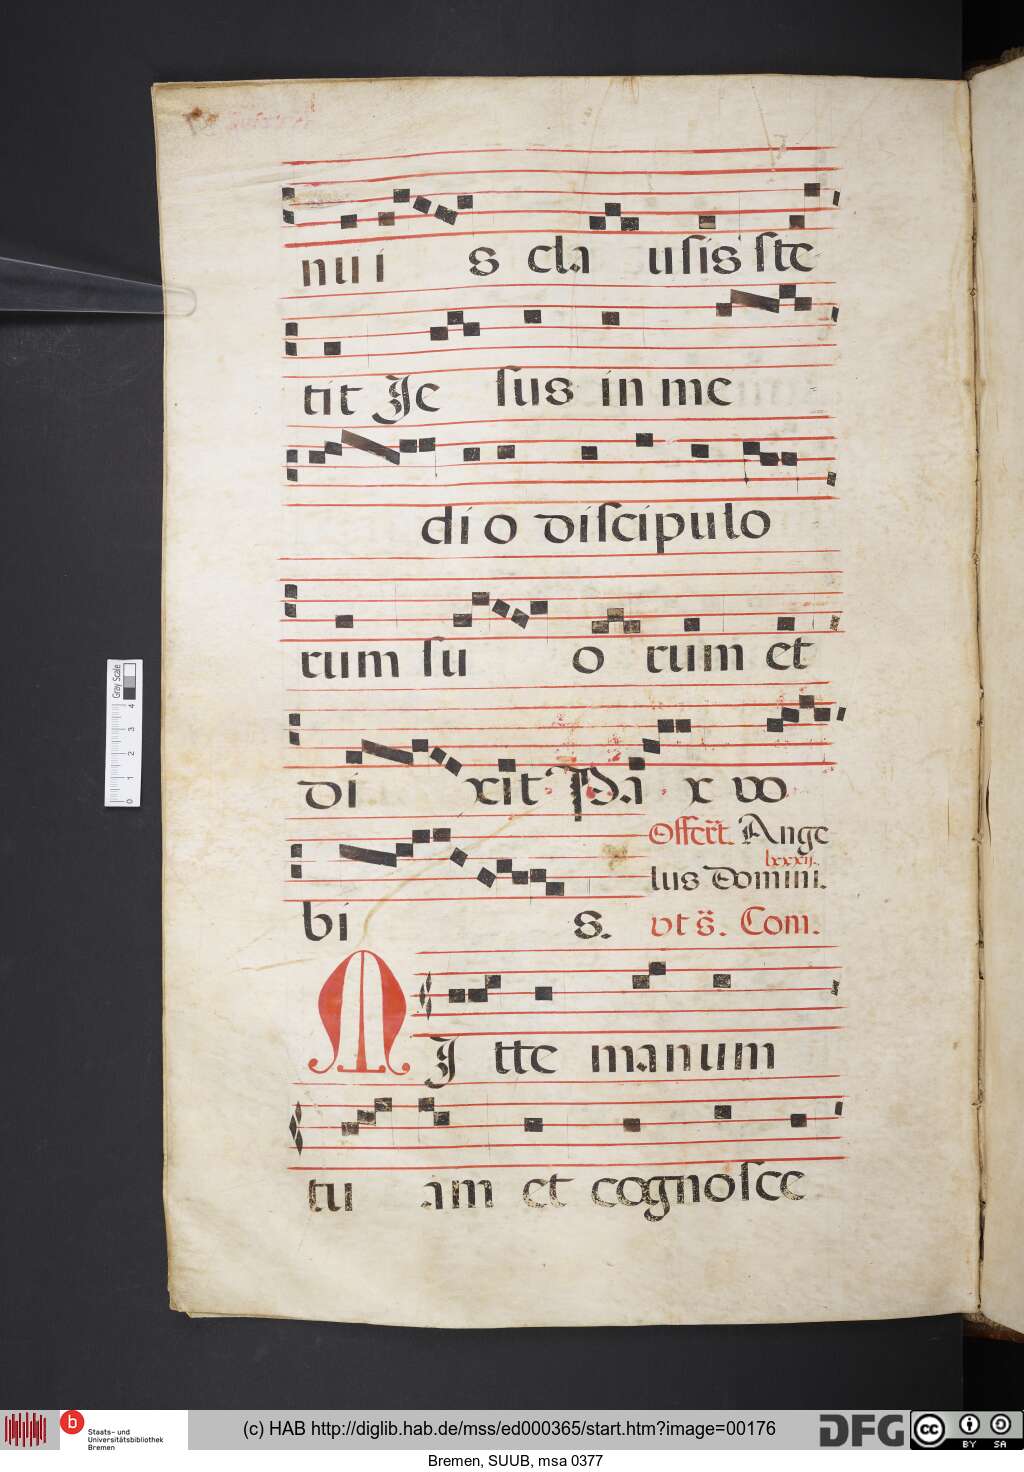 nui s cla usis ste
tit Je sus in me
di o discipulo
rum su o rum et
di xit Pa x vo
Offert. Ange
lxxxij.
lus Domini.
bi s. vt s. Com.
MJ tte manum
tu am et cognosce
Gray Scale
0 1 2 3 4
b Staats- und
Universitätsbibliothek
Bremen
(c) HAB http://diglib.hab.de/mss/ed000365/start.htm?image=00176
DFG
cc BY SA
Bremen, SUUB, msa 0377